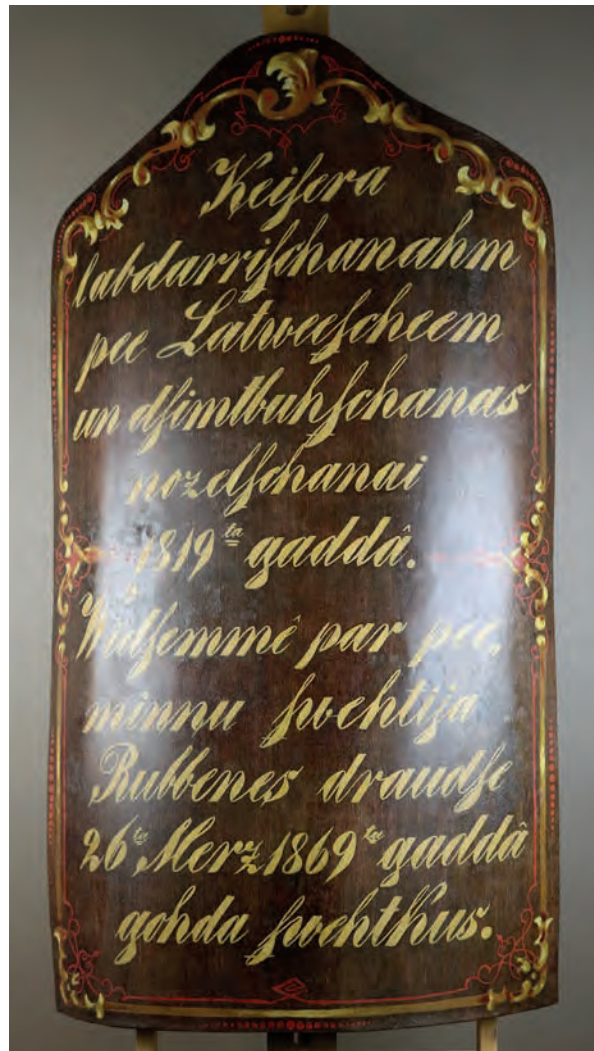 Keiſera
labdarriſchanahm
pee Latweeſcheem
un dſimtbuhſchanas
nozelſchanai
1819ta gaddâ.
Widſemmê par pee,
minnu ſwehtija
Rubbenes draudſe
26ta Merz 1869ta gaddâ
gohda ſwehtkus.